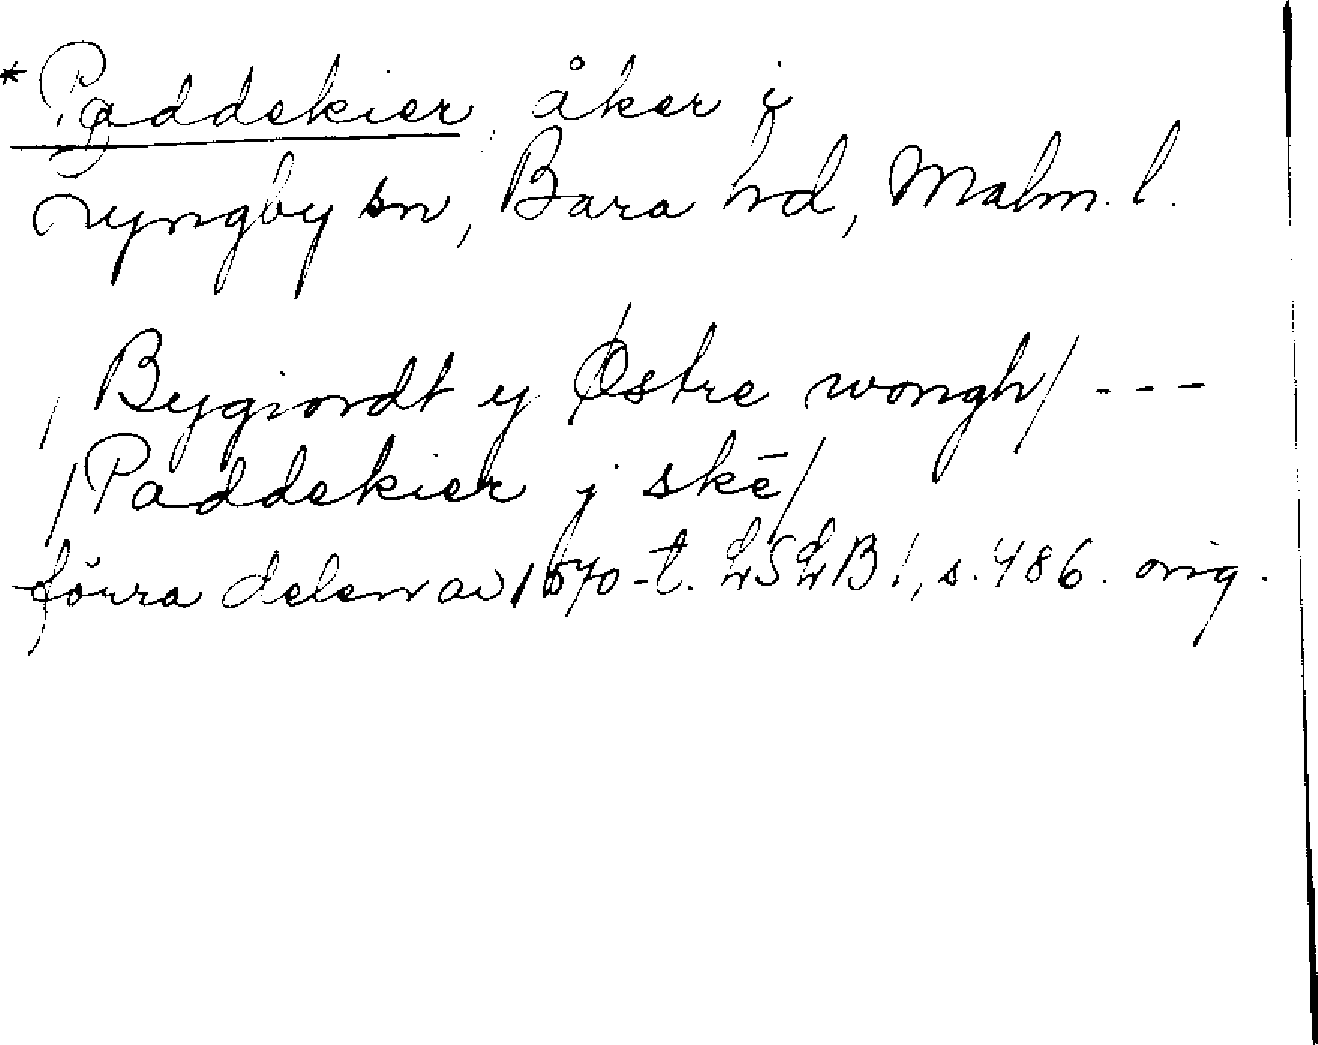 *Paddekier, åker i
Lyngby sn, Bara hd, Malm. l.
/ Bygiordt y Østre wongh/ ---
/Paddekier j skē/
förra delen av 1570-t. LSLB 1, s. 486. orig.